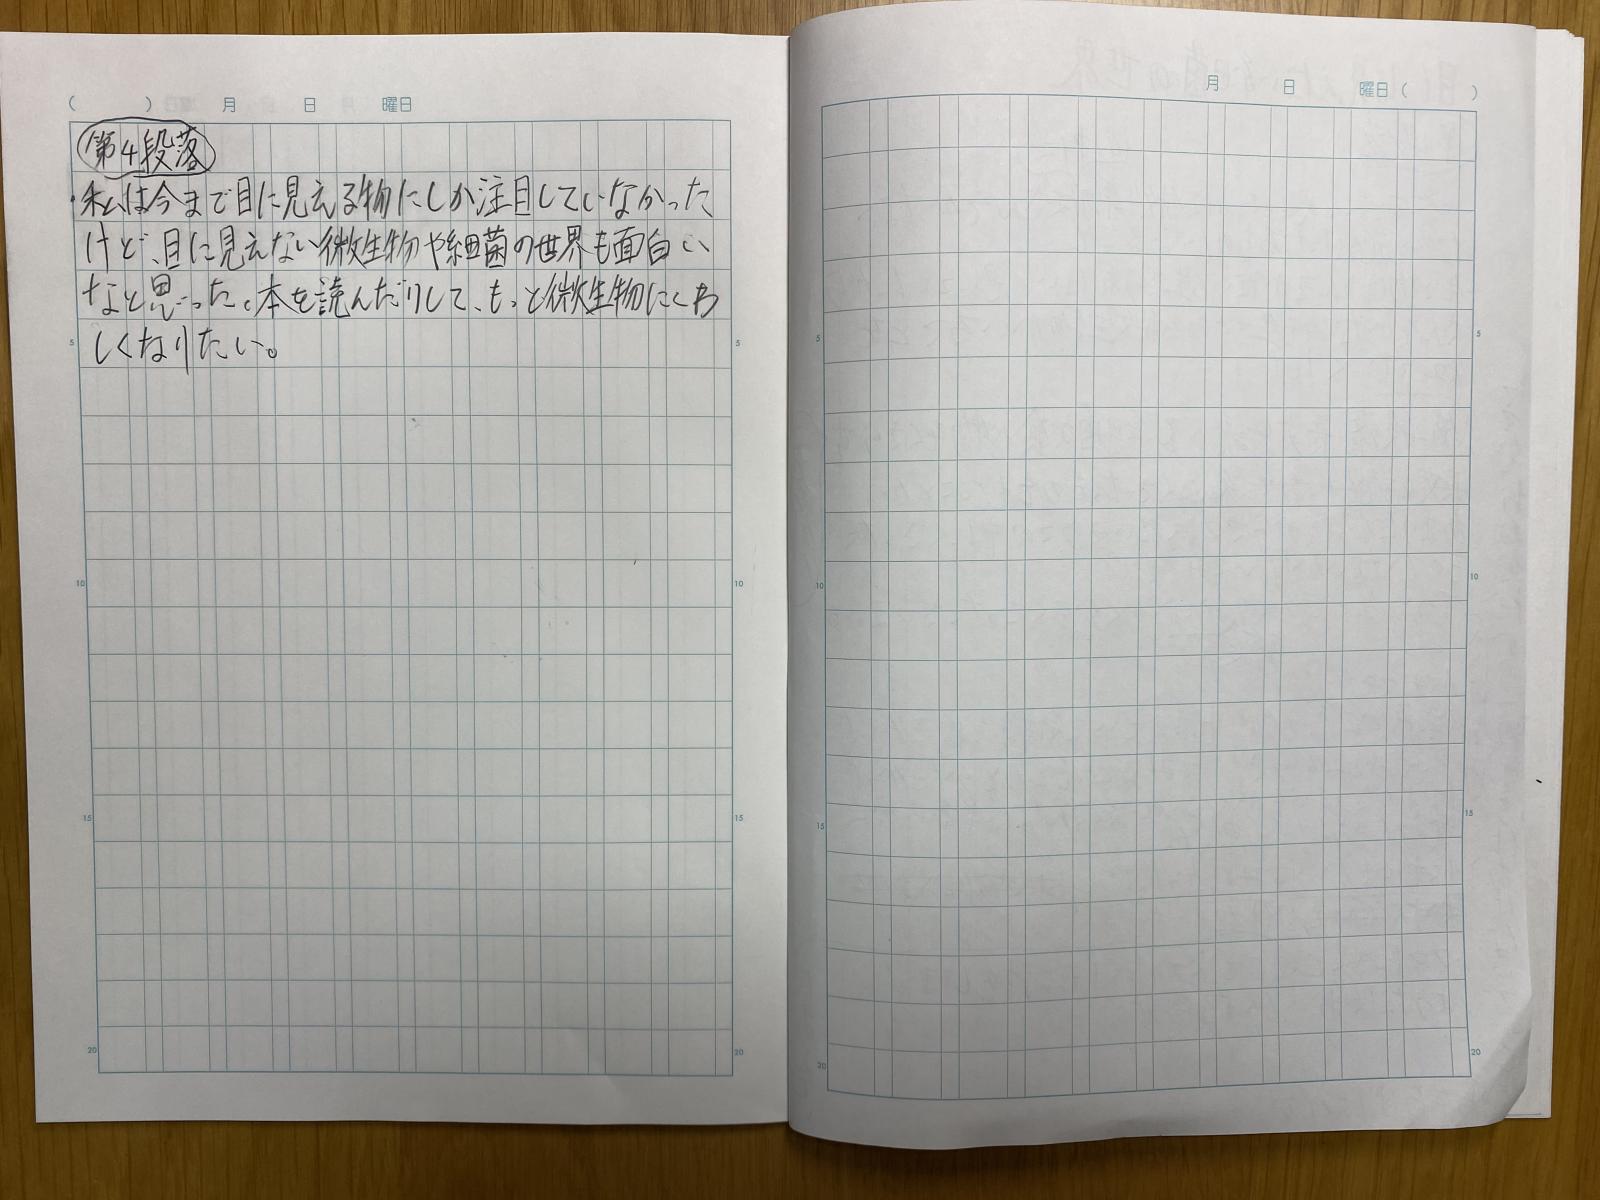 ( ) 月 日 曜日
第4段落
・私は今まで目に見える物にしか注目していなかった
けど、目に見えない微生物や細菌の世界も面白い
なと思った。本を読んだりして、もっと微生物にくわ
しくなりたい。
5 5
10 10
15 15
20 20
月 日 曜日 ( )
5 5
10 10
15 15
20 20